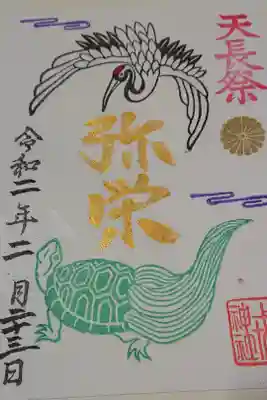 天長祭
弥栄
令和二年二月二十三日
神社